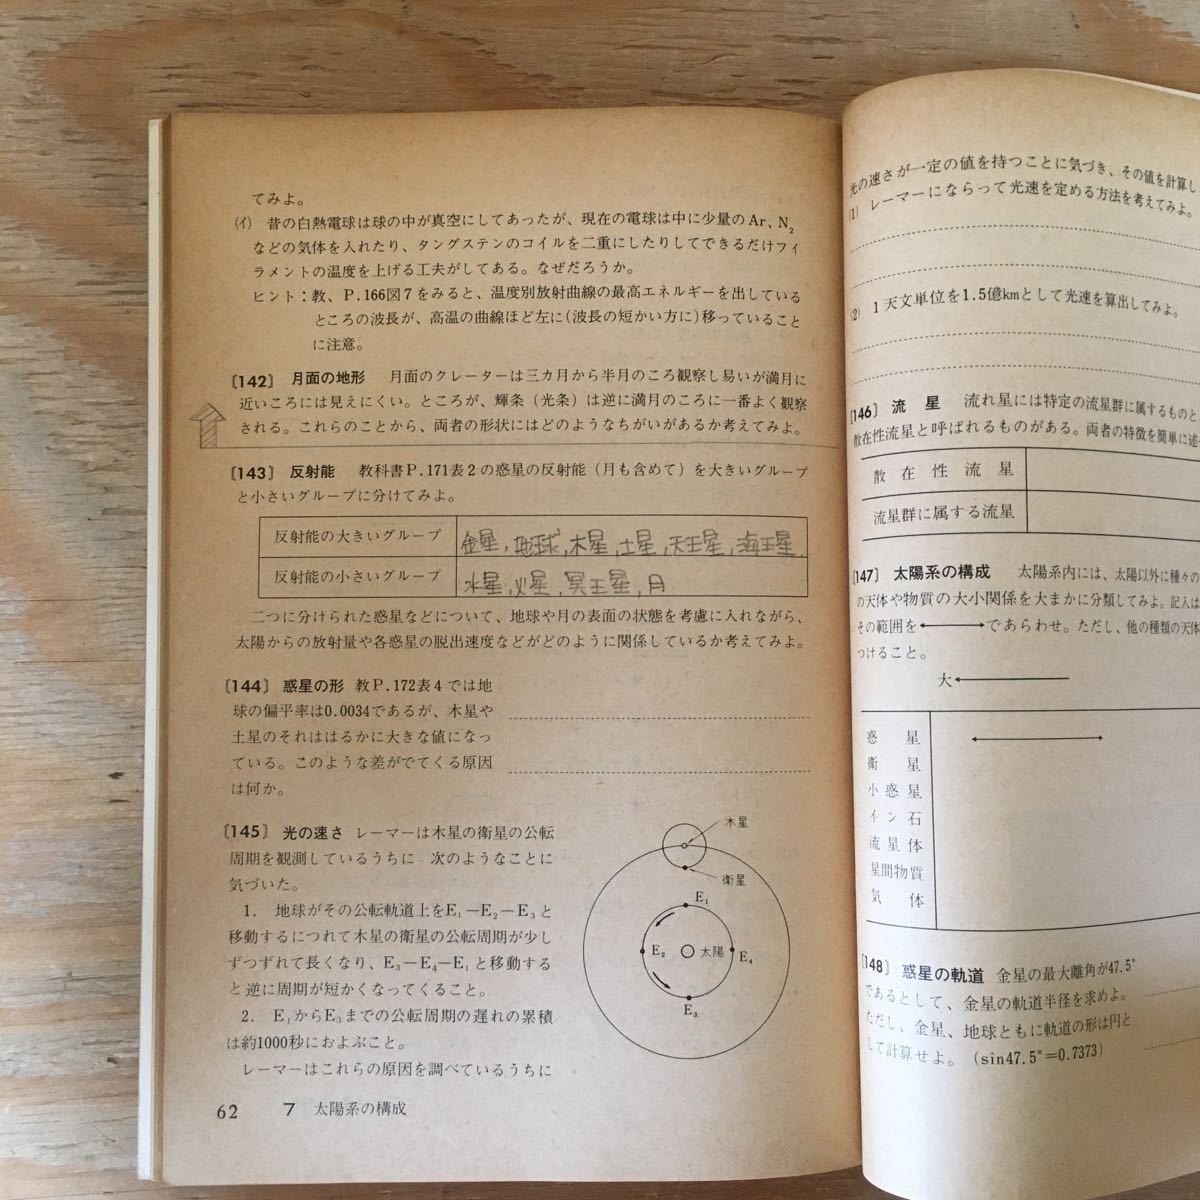 てみよ。
(イ) 昔の白熱電球は球の中が真空にしてあったが、現在の電球は中に少量のAr、N₂
などの気体を入れたり、タングステンのコイルを二重にしたりしてできるだけフィ
ラメントの温度を上げる工夫がしてある。なぜだろうか。
ヒント：教、P.166図7をみると、温度別放射曲線の最高エネルギーを出している
ところの波長が、高温の曲線ほど左に(波長の短かい方に)移っていること
に注意。
〔142〕 月面の地形 月面のクレーターは三カ月から半月のころ観察し易いが満月に
近いころには見えにくい。ところが、輝条（光条）は逆に満月のころに一番よく観察
される。これらのことから、両者の形状にはどのようなちがいがあるか考えてみよ。
〔143〕 反射能 教科書P.171表2の惑星の反射能（月も含めて）を大きいグループ
と小さいグループに分けてみよ。
反射能の大きいグループ 金星,地球,木星,土星,天王星,海王星
反射能の小さいグループ 水星,火星,冥王星,月
二つに分けられた惑星などについて、地球や月の表面の状態を考慮に入れながら、
太陽からの放射量や各惑星の脱出速度などがどのように関係しているか考えてみよ。
〔144〕 惑星の形 教P.172表4では地
球の偏平率は0.0034であるが、木星や
土星のそれははるかに大きな値になっ
ている。このような差がでてくる原因
は何か。
〔145〕 光の速さ レーマーは木星の衛星の公転
周期を観測しているうちに 次のようなことに
気づいた。
1. 地球がその公転軌道上をE₁－E₂－E₃と
移動するにつれて木星の衛星の公転周期が少し
ずつずれて長くなり、E₃－E₄－E₁と移動する
と逆に周期が短かくなってくること。
2. E₁からE₃までの公転周期の遅れの累積
は約1000秒におよぶこと。
レーマーはこれらの原因を調べているうちに
木星
衛星
E₁
E₂
太陽
E₄
E₃
62 7 太陽系の構成
光の速さが一定の値を持つことに気づき、その値を計算し
(1) レーマーにならって光速を定める方法を考えてみよ。
(2) 1天文単位を1.5億kmとして光速を算出してみよ。
〔146〕 流星 流れ星には特定の流星群に属するものと
散在性流星と呼ばれるものがある。両者の特徴を簡単に述
散在性流星
流星群に属する流星
〔147〕 太陽系の構成 太陽系内には、太陽以外に種々の
の天体や物質の大小関係を大まかに分類してみよ。記入は
その範囲を←→であらわせ。ただし、他の種類の天体
つけること。
大←
惑星
衛星
小惑星
イン石
流星体
星間物質
気体
〔148〕 惑星の軌道 金星の最大離角が47.5°
であるとして、金星の軌道半径を求めよ。
ただし、金星、地球ともに軌道の形は円と
して計算せよ。（sin47.5°＝0.7373）